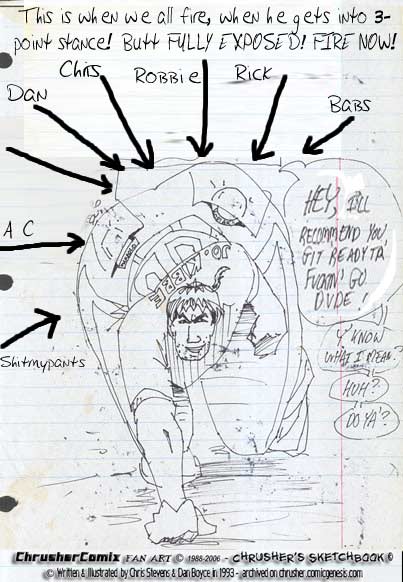 This is when we all fire, when he gets into 3-
point stance! Butt FULLY EXPOSED! FIRE NOW!
Chris
Robbie
Rick
Dan
Babs
A C
Shitmypants
HEY, I'LL
RECOMMEND YOU
GIT READY TA'
FUCKIN' GO
DUDE!
Y'KNOW
WHAT I MEAN?
HUH?
DO YA'?
ChrusherComix FAN ART © 1988-2006 - CHRUSHER'S SKETCHBOOK ©
© Written & Illustrated by Chris Stevens & Dan Boyce in 1993 - archived on chrusher.comicgenesis.com